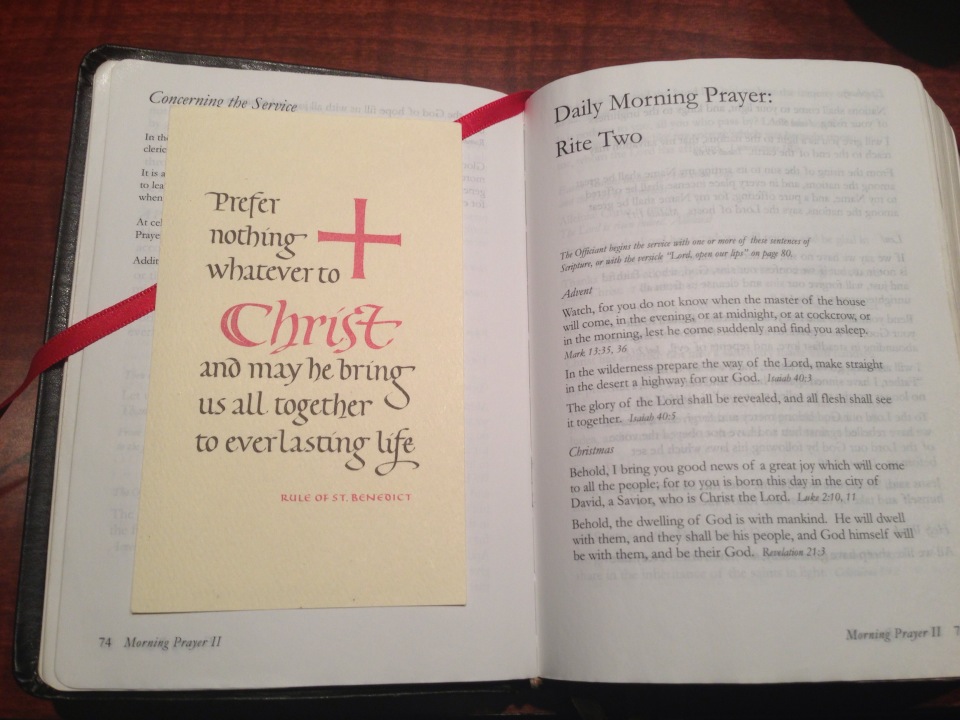 Concerning the Service
In the
cleric
It is a
to lea
when
At cel
Praye
Addit
Prefer
nothing
whatever to
Christ
and may he bring
us all together
to everlasting life
RULE OF ST. BENEDICT
74 Morning Prayer II
Daily Morning Prayer:
Rite Two
The Officiant begins the service with one or more of these sentences of
Scripture, or with the versicle "Lord, open our lips" on page 80.
Advent
Watch, for you do not know when the master of the house
will come, in the evening, or at midnight, or at cockcrow, or
in the morning, lest he come suddenly and find you asleep.
Mark 13:35, 36
In the wilderness prepare the way of the Lord, make straight
in the desert a highway for our God. Isaiah 40:3
The glory of the Lord shall be revealed, and all flesh shall see
it together. Isaiah 40:5
Christmas
Behold, I bring you good news of a great joy which will come
to all the people; for to you is born this day in the city of
David, a Savior, who is Christ the Lord. Luke 2:10, 11
Behold, the dwelling of God is with mankind. He will dwell
with them, and they shall be his people, and God himself will
be with them, and be their God. Revelation 21:3
Morning Prayer II 7